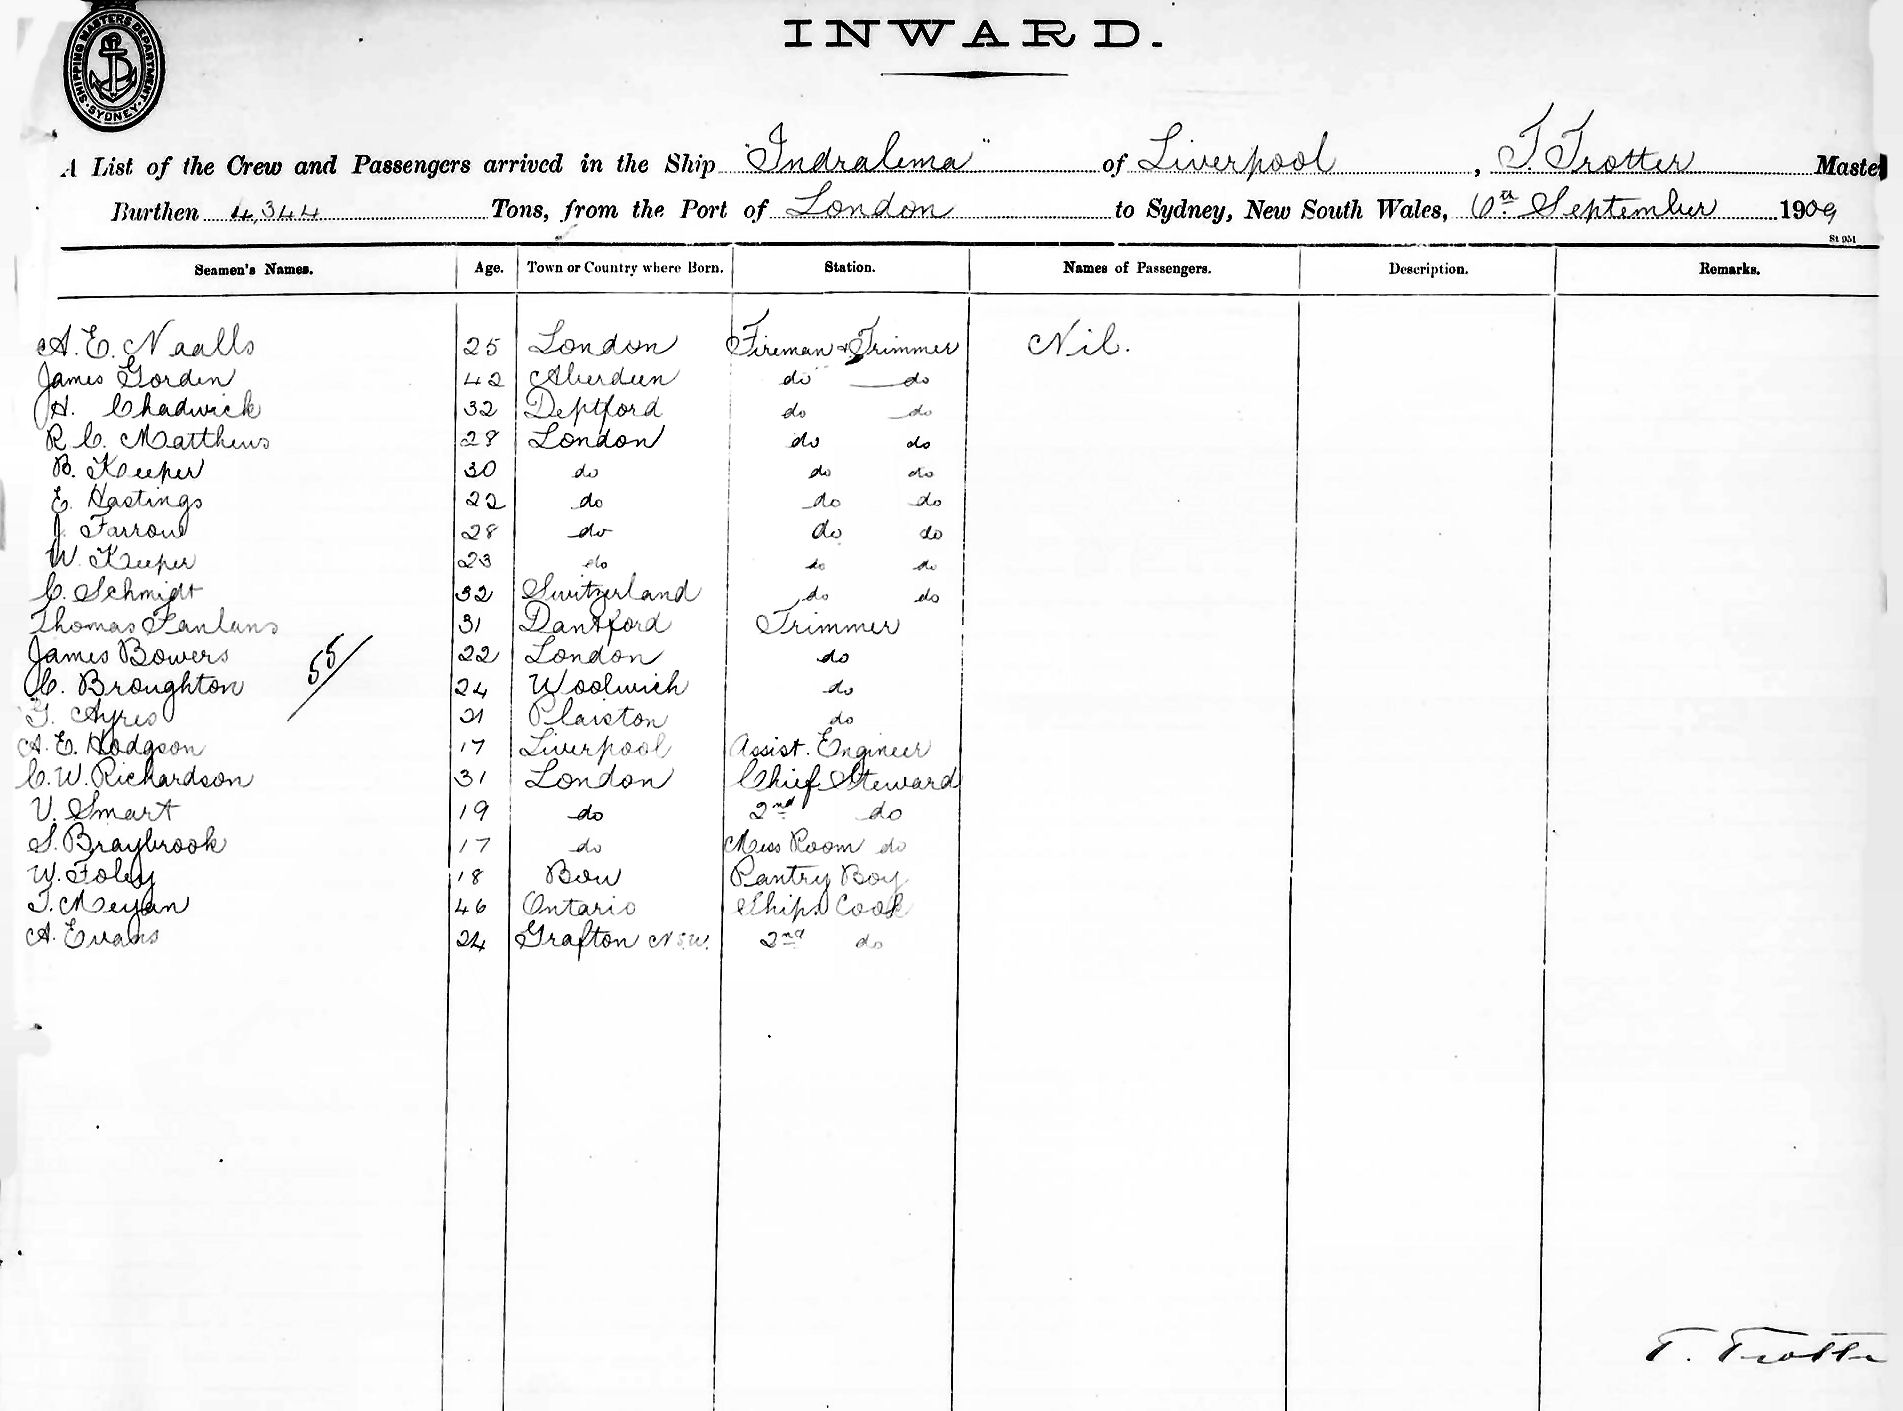 SHIPPING MASTERS DEPARTMENT · SYDNEY ·
INWARD.
A List of the Crew and Passengers arrived in the Ship "Indralema" of Liverpool, T. Trotter Master
Burthen 4,344 Tons, from the Port of London to Sydney, New South Wales, 6th September 1909
St 951
Seamen's Names. Age. Town or Country where Born. Station. Names of Passengers. Description. Remarks.
A. E. Naalls 25 London Fireman & Trimmer Nil.
James Gorden 42 Aberdeen do do
H. Chadwick 32 Deptford do do
R. C. Matthews 28 London do do
B. Keeper 30 do do do
E. Hastings 22 do do do
J. Farrow 28 do do do
W. Keeper 23 do do do
C. Schmidt 32 Switzerland do do
Thomas 31 Dantford Trimmer
James Bowers 22 London do
55/
C. Broughton 24 Woolwich do
Ayres 21 Plaiston do
A. E. Hodgson 17 Liverpool Assist. Engineer
C. W. Richardson 31 London Chief Steward
V. Smart 19 do 2nd do
S. Braybrook 17 do Mess Room do
W. Foley 18 Bow Pantry Boy
T. Meyan 46 Ontario Ships Cook
A. Evans 24 Grafton N.S.W. 2nd do
T. Trotter